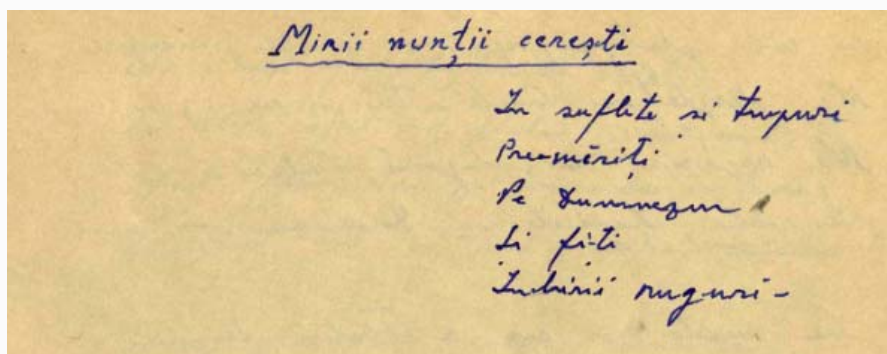 Mirii nunții cerești
In suflete si trupuri
Prea-măriți
Pe Dumnezeu
Si fi-ti
Iubirii ruguri-